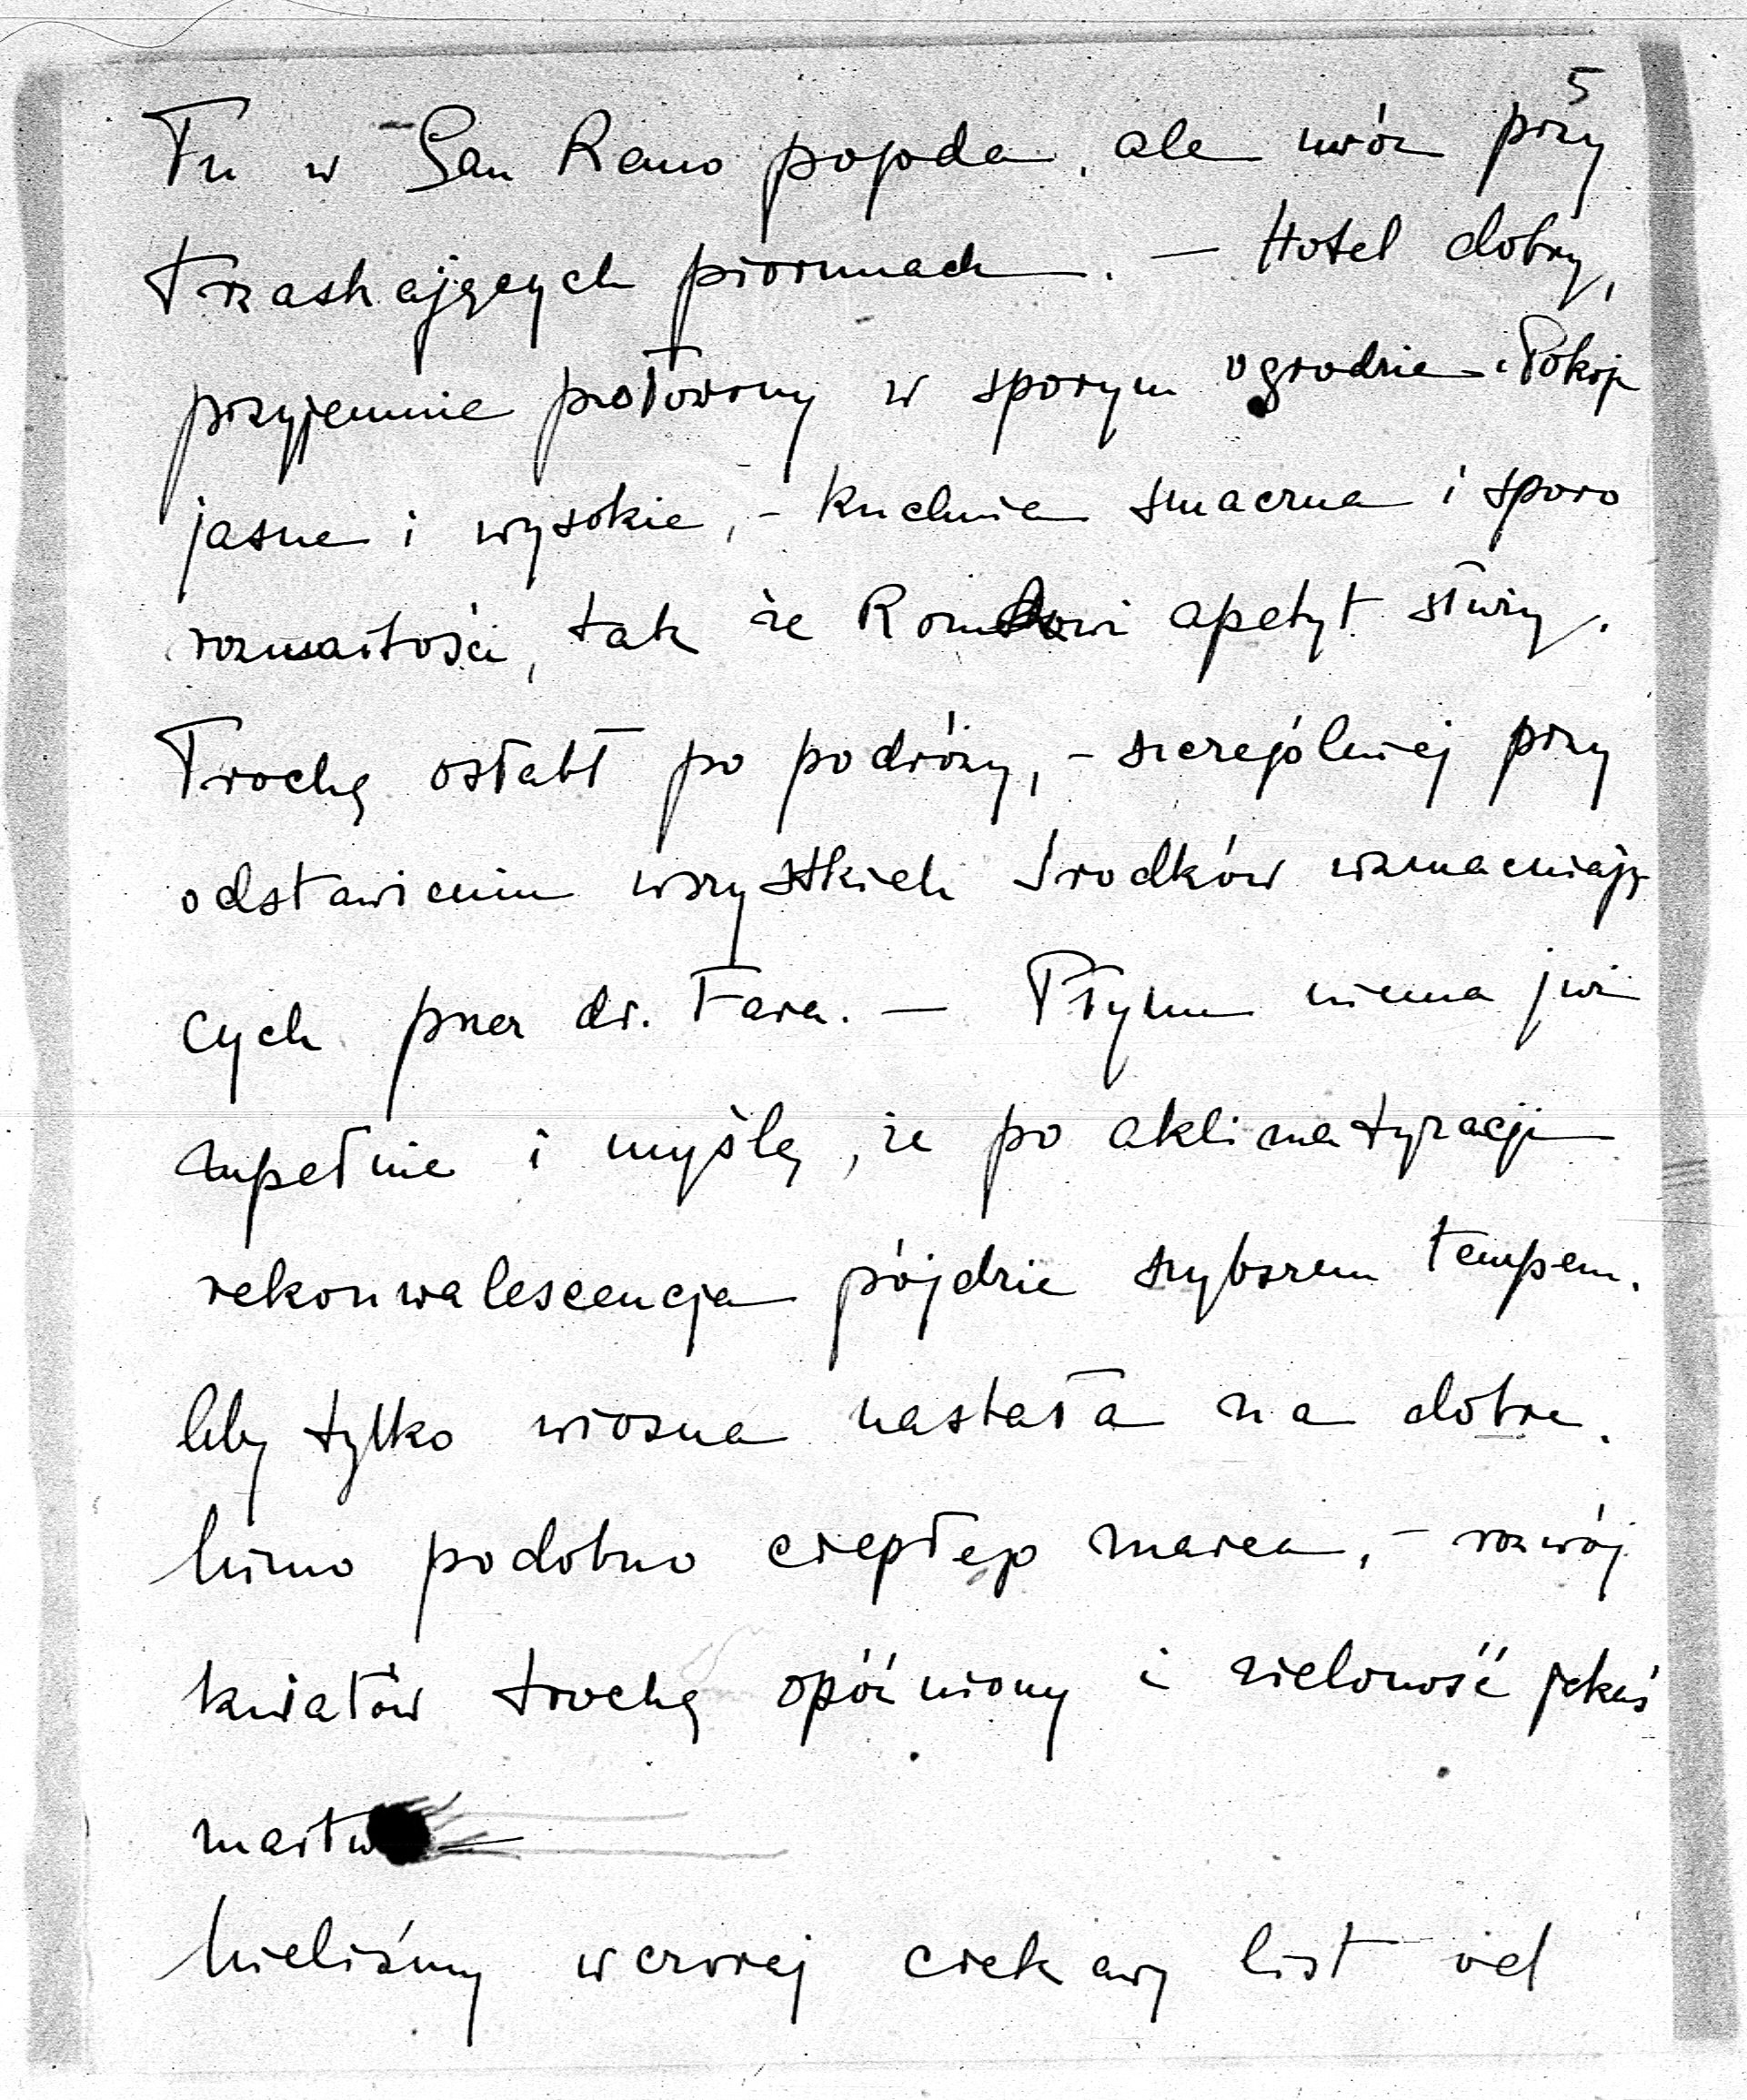 5
Tu w San Remo pogoda, ale mróz przy
trzaskających piorunach. – Hotel dobry,
przyjemnie położony w sporym ogrodzie. Pokoje
jasne i wysokie, – kuchnia smaczna i sporo
rozmaitości, tak że Romkowi apetyt służy.
Trochę osłabł po podróży, – szczególniej przy
odstawieniu wszystkich środków wzmacniają
cych przez dr. Fava. – Płynu niema już
zupełnie i myślę, że po aklimatyzacji
rekonwalescencja pójdzie szybszem tempem.
Aby tylko wiosna nastała na dobre.
Mimo podobno ciepłego marca, – rozwój
kwiatów trochę opóźniony i zieloność jakaś
martwa
Mieliśmy wczoraj ciekawy list od